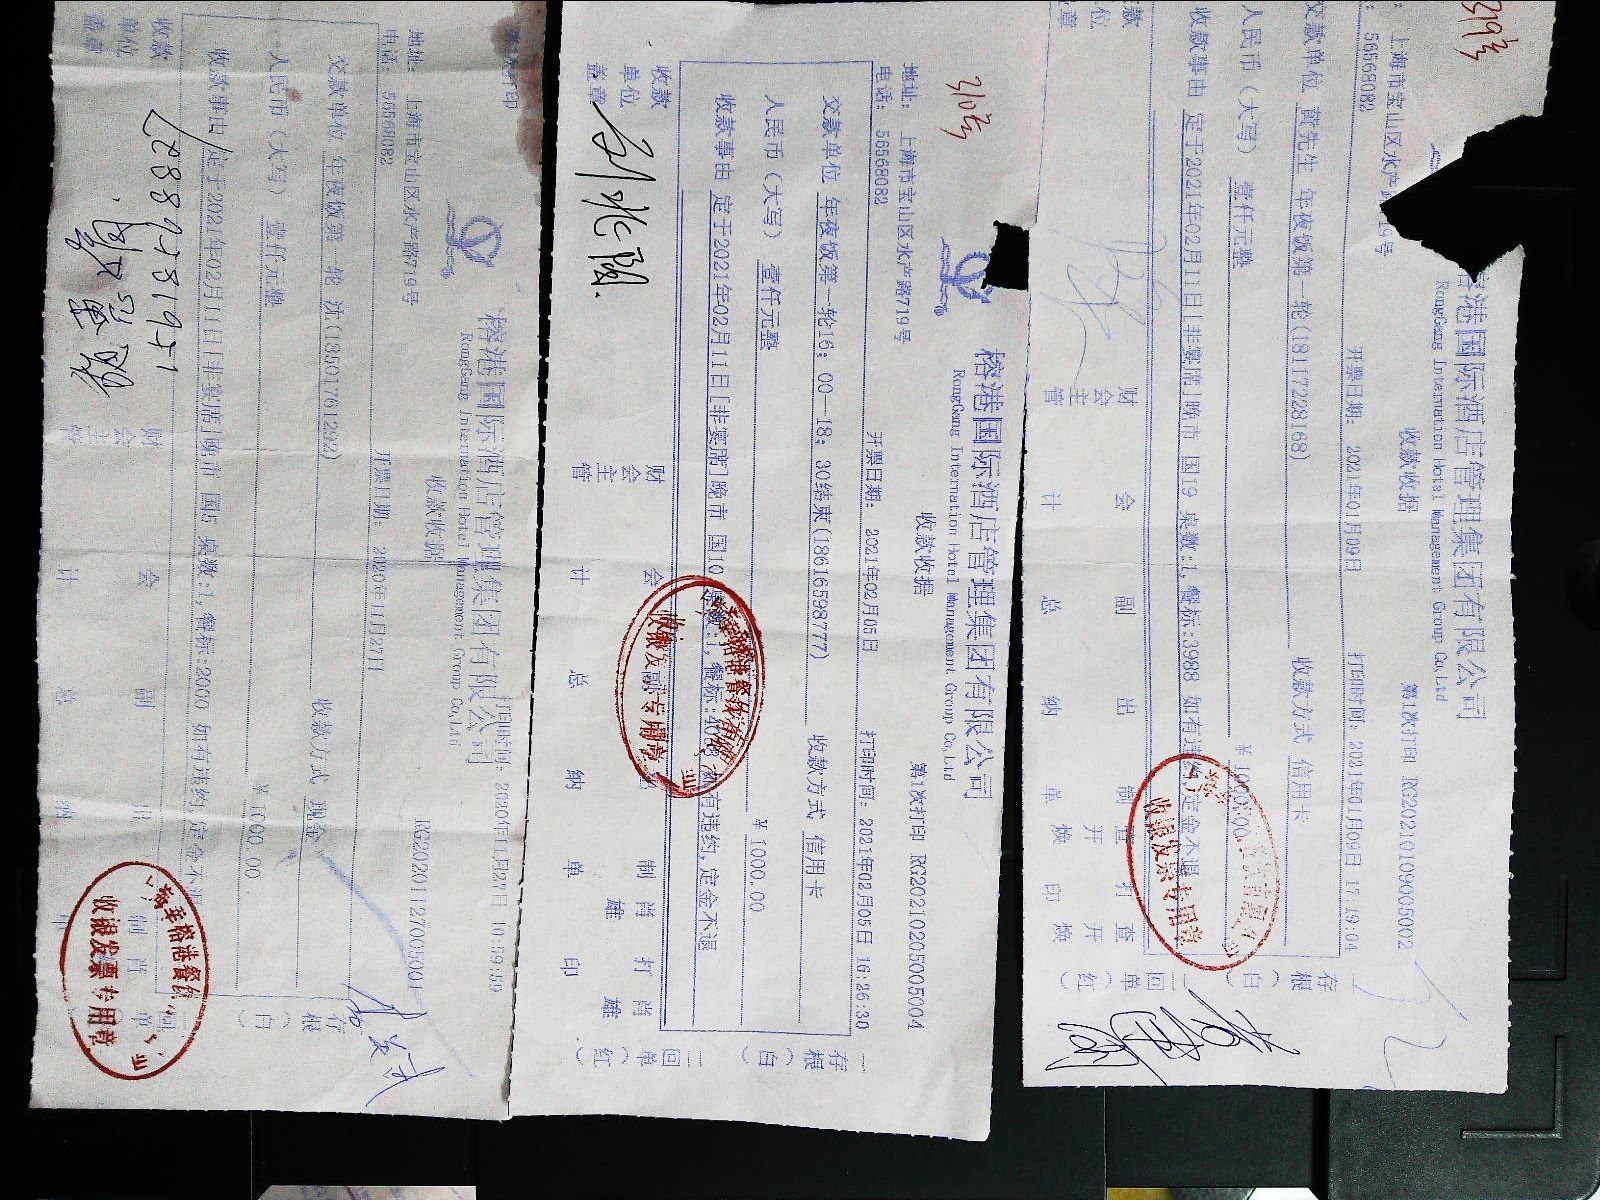 榕港国际酒店管理集团有限公司
RongGang International Hotel Management Group Co,Ltd
收款收据
RG20201127005001
地址: 上海市宝山区水产路719号
电话: 56568082
开票日期: 2020年11月27日
打印时间: 2020年11月27日 10:59:59
交款单位 年夜饭第一轮 沈(18501761292)
收款方式 现金
人民币（大写） 壹仟元整
￥1000.00
收款事由 定于2021年02月11日[非宴席]晚市 国5 桌数:1,餐标:2000 如有违约,定金不退
收款单位盖章
财会主管
会计
副总
出纳
制单
存根（白）
二回单（红）
收银发票专用章
310号
榕港国际酒店管理集团有限公司
RongGang International Hotel Management Group Co,Ltd
收款收据
第1次打印 RG20210205005004
地址: 上海市宝山区水产路719号
电话: 56568082
开票日期: 2021年02月05日
打印时间: 2021年02月05日 16:26:30
交款单位 年夜饭第一轮16:00—18:30结束(18616598777)
收款方式 信用卡
人民币（大写） 壹仟元整
￥1000.00
收款事由 定于2021年02月11日[非宴席]晚市 国10 桌数:1,餐标:4088 如有违约,定金不退
收款单位盖章
财会主管
会计
总
纳
制单
肖雄
打印
肖雄
一存根（白）
二回单（红）
收银发票专用章
319号
榕港国际酒店管理集团有限公司
RongGang International Hotel Management Group Co,Ltd
收款收据
第1次打印 RG20210109005002
上海市宝山区水产路719号
56568082
开票日期: 2021年01月09日
打印时间: 2021年01月09日 17:19:04
交款单位 黄先生 年夜饭第一轮(18117228168)
收款方式 信用卡
人民币（大写） 壹仟元整
￥1000.00
收款事由 定于2021年02月11日[非宴席]晚市 国19 桌数:1,餐标:3988 如有违约,定金不退
财会主管
会计
副总
出纳
制单
查开焕
打印
查开焕
存根（白）
二回单（红）
收银发票专用章